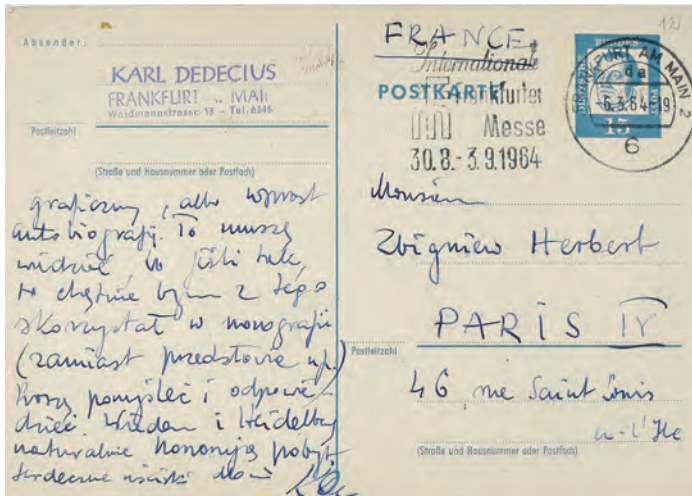 Absender:
KARL DEDECIUS
FRANKFURT MAI
Waidmannstrasse 13 - Tel. 6345
Postleitzahl
(Straße und Hausnummer oder Postfach)
graficzny, albo wprost
autobiografię. To muszę
wiedzieć, bo jeśli tak,
to chętnie bym z tego
skorzystał w monografii
(zamiast przedsłowia np.)
Proszę pomyśleć i odpowie-
dzieć. Wiedeń i Heidelberg
naturalnie honorują pobyt
Serdeczne uściski
FRANCE
Internationale
POSTKARTE
Frankfurter
Messe
30.8.-3.9.1964
FRANKFURT AM MAIN 2
da
6.3.64-19
6
DEUTSCHE BUNDESPOST
15
Monsieur
Zbigniew Herbert
PARIS IV
Postleitzahl
46, rue Saint Louis
en-l'Ile
(Straße und Hausnummer oder Postfach)